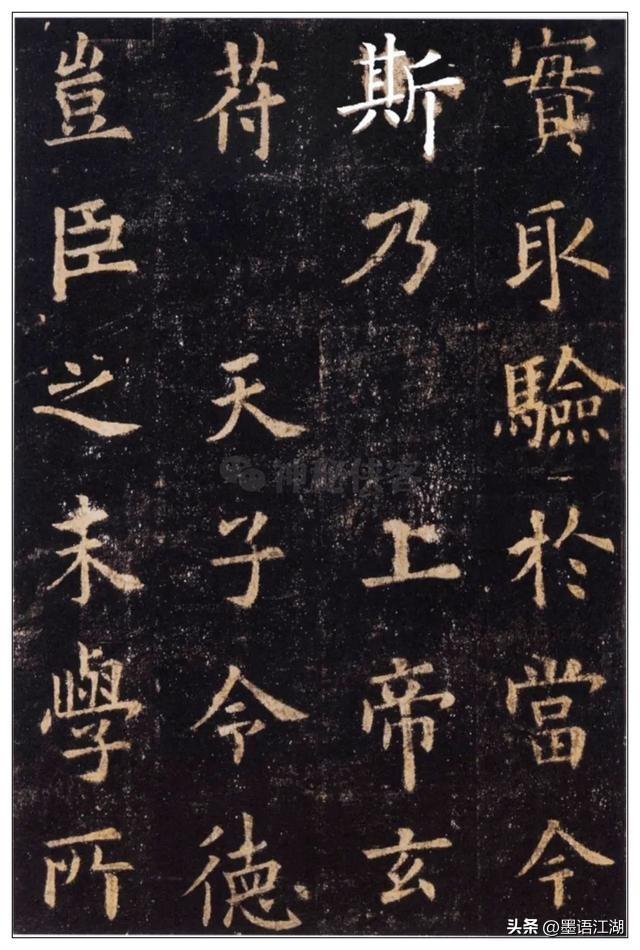 實取驗於當今
斯乃 上帝玄
苻 天子令德
豈臣之末學所
神秘侠客
头条 @墨语江湖